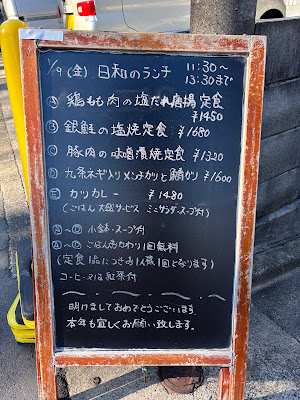 1/9(金) 日和のランチ 11:30〜
13:30まで
Ⓐ 鶏もも肉の塩だれ唐揚定食
¥1450
Ⓑ 銀鮭の塩焼定食 ¥1680
Ⓒ 豚肉の味噌漬焼定食 ¥1320
Ⓓ 九条ネギ入りメンチカツと鯵カツ ¥1600
Ⓔ カツカレー ¥1480
(ごはん大盛サービス ミニサラダ・スープ付)
Ⓐ〜Ⓓ 小鉢・スープ付
Ⓐ〜Ⓓ ごはんおかわり1回無料
(定食1品につきお1人様1回となります)
コーヒー又は紅茶付
明けましておめでとうございます
本年も宜しくお願い致します。